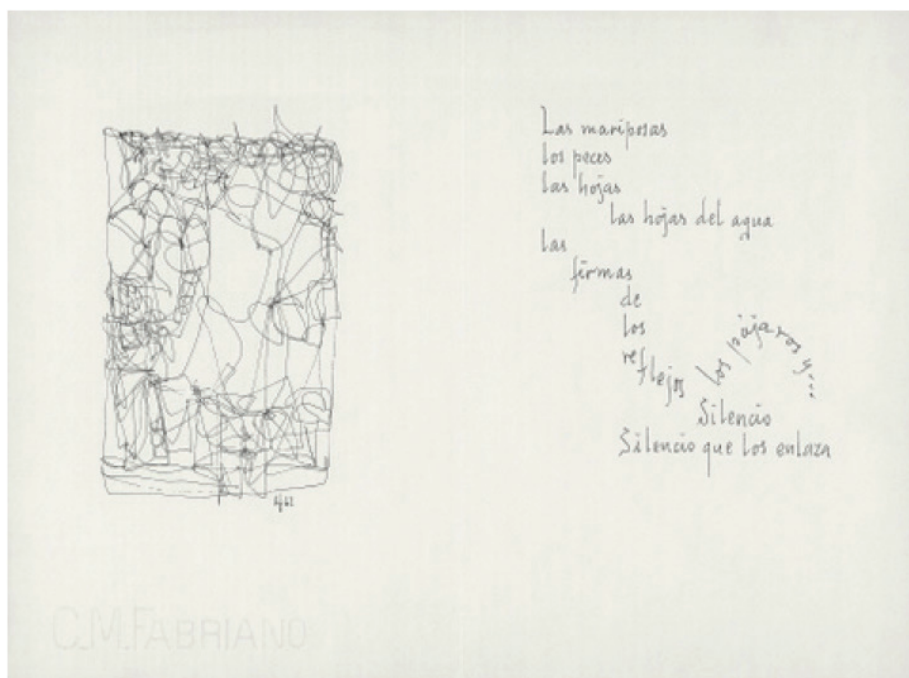 Las mariposas
los peces
las hojas
las hojas del agua
las
firmas
de
los
ref
flejos los pájaros y...
Silencio
Silencio que los enlaza
C.M.FABRIANO